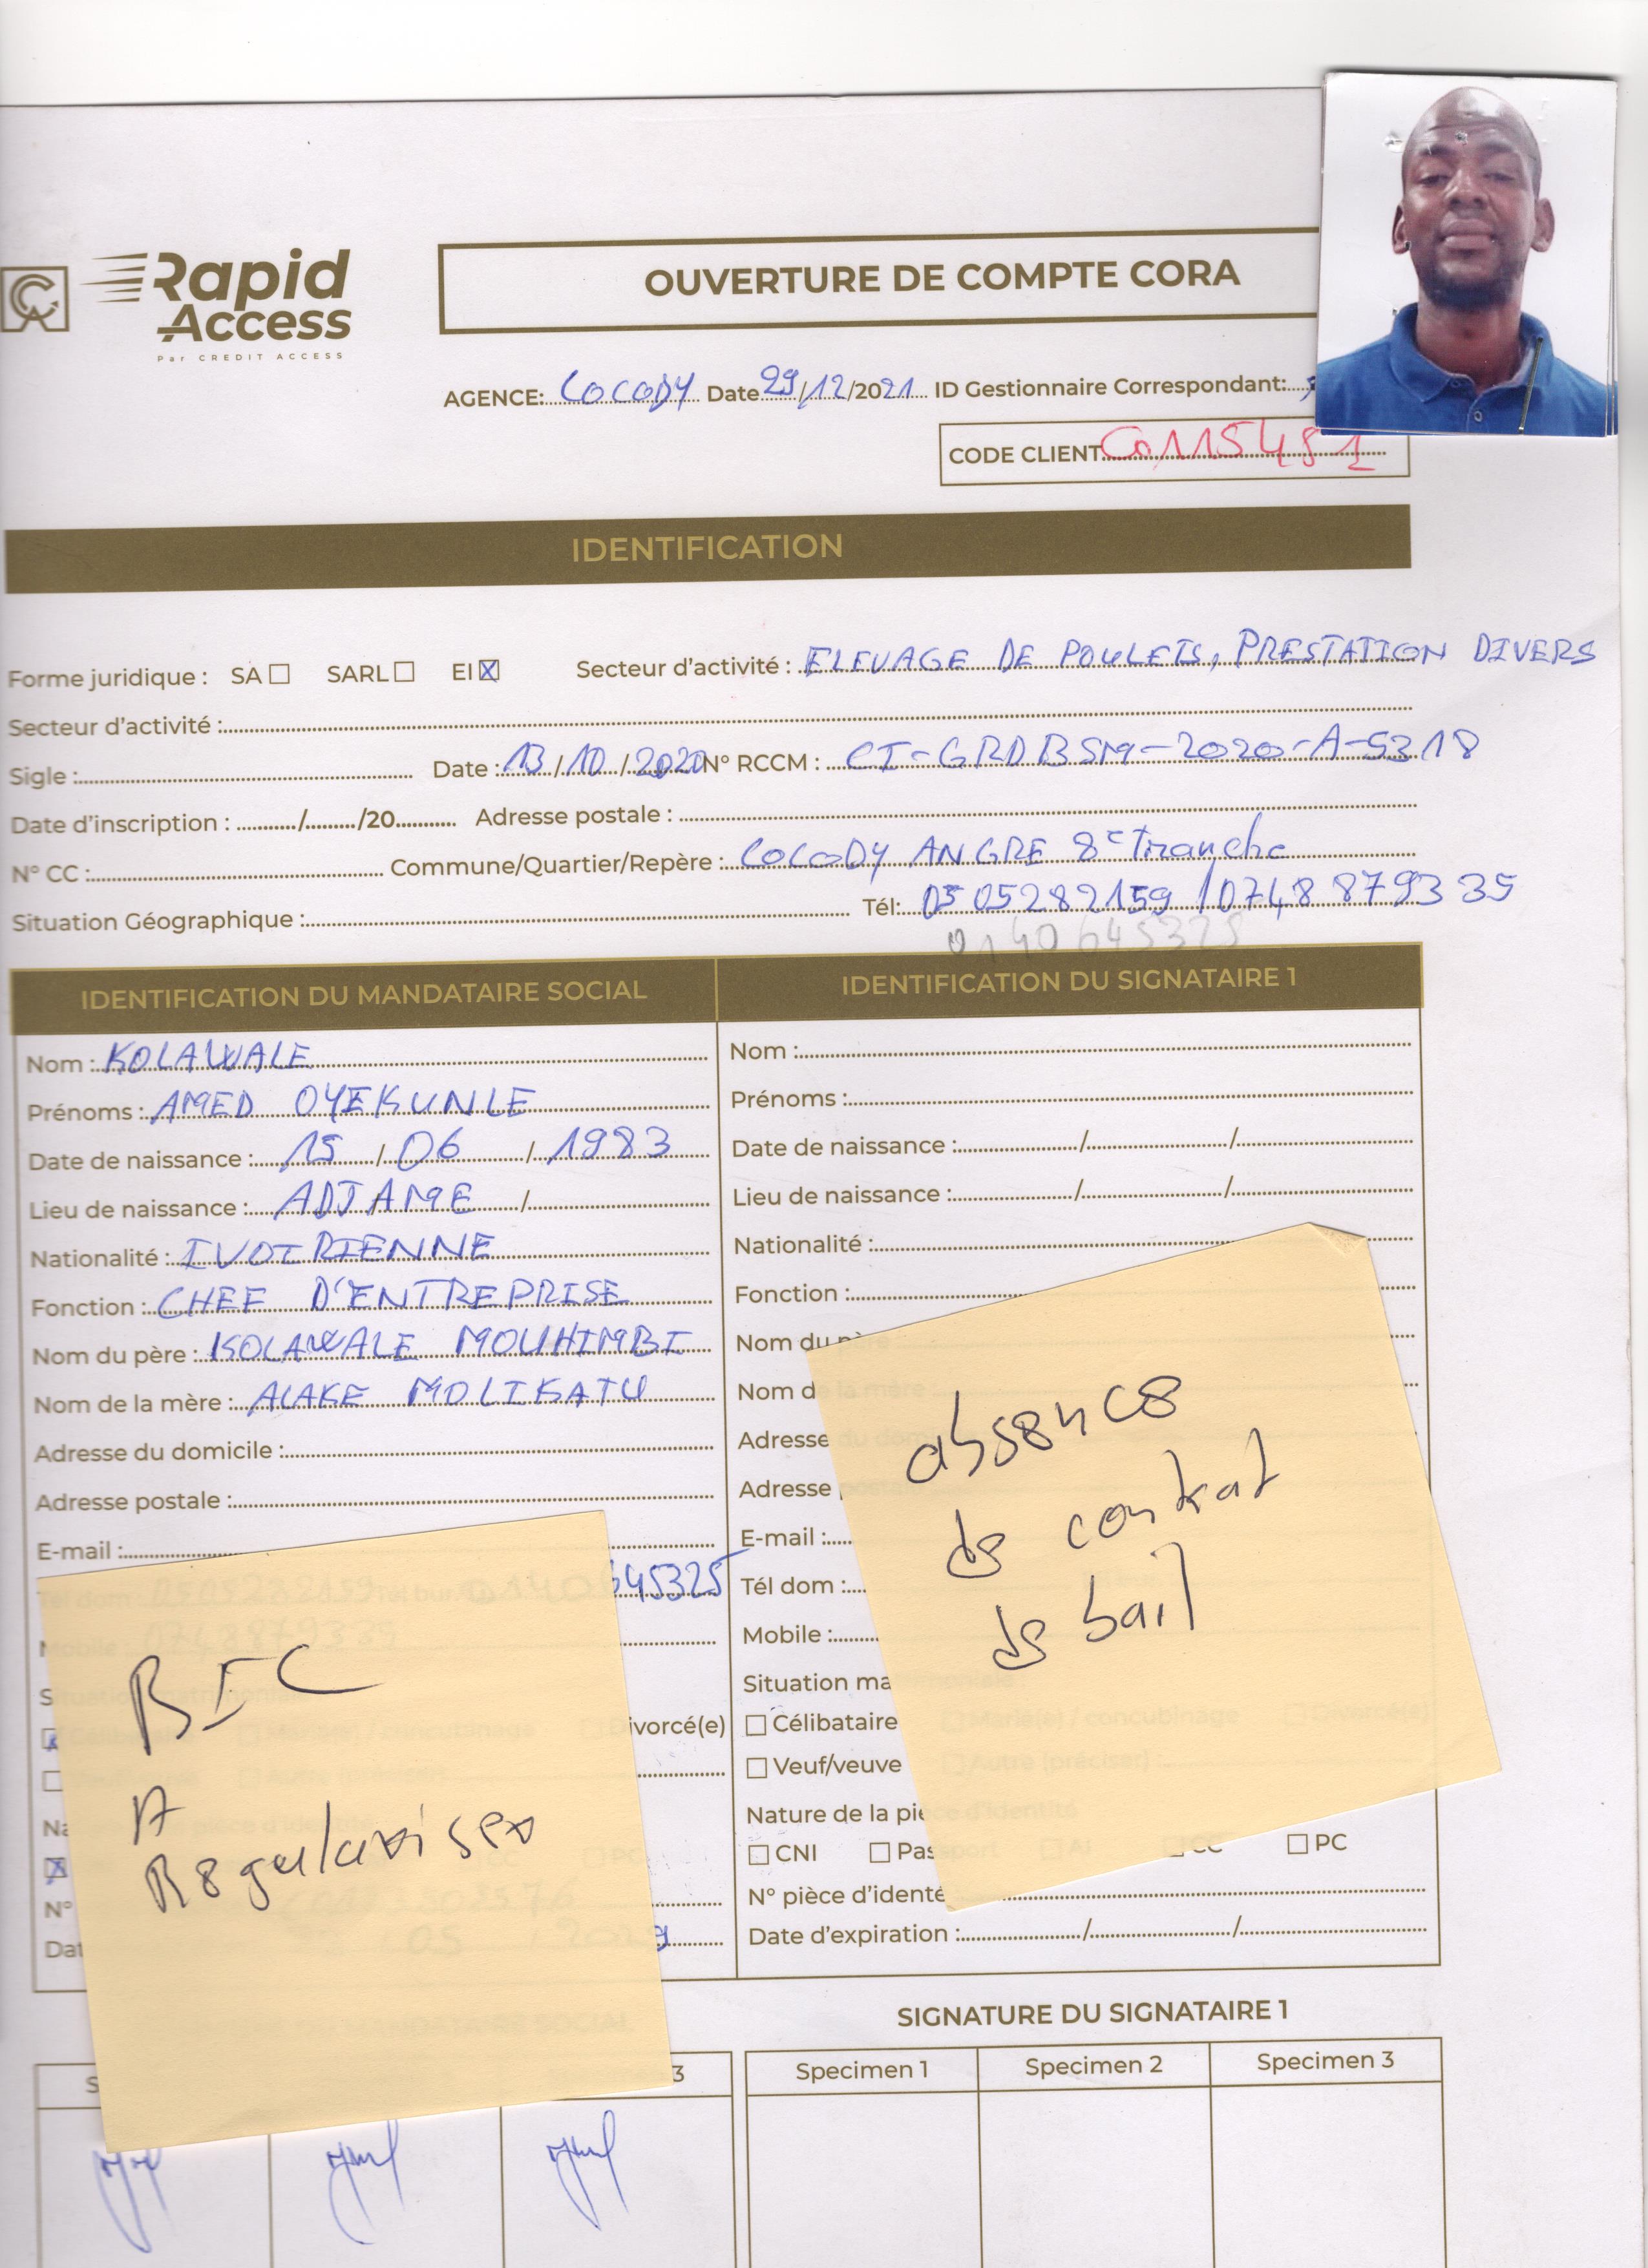 Rapid
Access
Par CREDIT ACCESS
OUVERTURE DE COMPTE CORA
AGENCE: COCODY Date 29/12/2021 ID Gestionnaire Correspondant:
CODE CLIENT C0115481
IDENTIFICATION
Forme juridique : SA ☐ SARL ☐ EI ☒ Secteur d'activité : ELEVAGE DE POULETS, PRESTATION DIVERS
Secteur d'activité :
Sigle : Date : 13/10/2020 N° RCCM : CI-GRDBSM-2020-A-5318
Date d'inscription : ......./......./20....... Adresse postale :
N° CC : Commune/Quartier/Repère : COCODY ANGRE 8e Tranche
Situation Géographique : Tél: 0505282159 / 0748879335
0140645325
IDENTIFICATION DU MANDATAIRE SOCIAL
Nom : KOLAWALE
Prénoms : AMED OYEKUNLE
Date de naissance : 15 / 06 / 1983
Lieu de naissance : ADJAME /
Nationalité : IVOIRIENNE
Fonction : CHEF D'ENTREPRISE
Nom du père : KOLAWALE MOUHIMBI
Nom de la mère : ALAKE MOLIKATU
Adresse du domicile :
Adresse postale :
E-mail :
645325
ivorcé(e)
BIC
A
Regulariser
IDENTIFICATION DU SIGNATAIRE 1
Nom :
Prénoms :
Date de naissance : / /
Lieu de naissance : / /
Nationalité :
Fonction :
Nom du père
Nom de la mère :
Adresse du domi
Adresse postal
E-mail :
Tél dom :
Mobile :
Situation matrimoniale :
☐ Célibataire ☐ Marié(e) / concubinage ☐ Divorcé(e)
☐ Veuf/veuve ☐ Autre (préciser) :
Nature de la pièce d'identité
☐ CNI ☐ Passport ☐ AI ☐ CC ☐ PC
N° pièce d'identé
Date d'expiration : / /
absence
de contrat
de bail
SIGNATURE DU SIGNATAIRE 1
Specimen 1 Specimen 2 Specimen 3